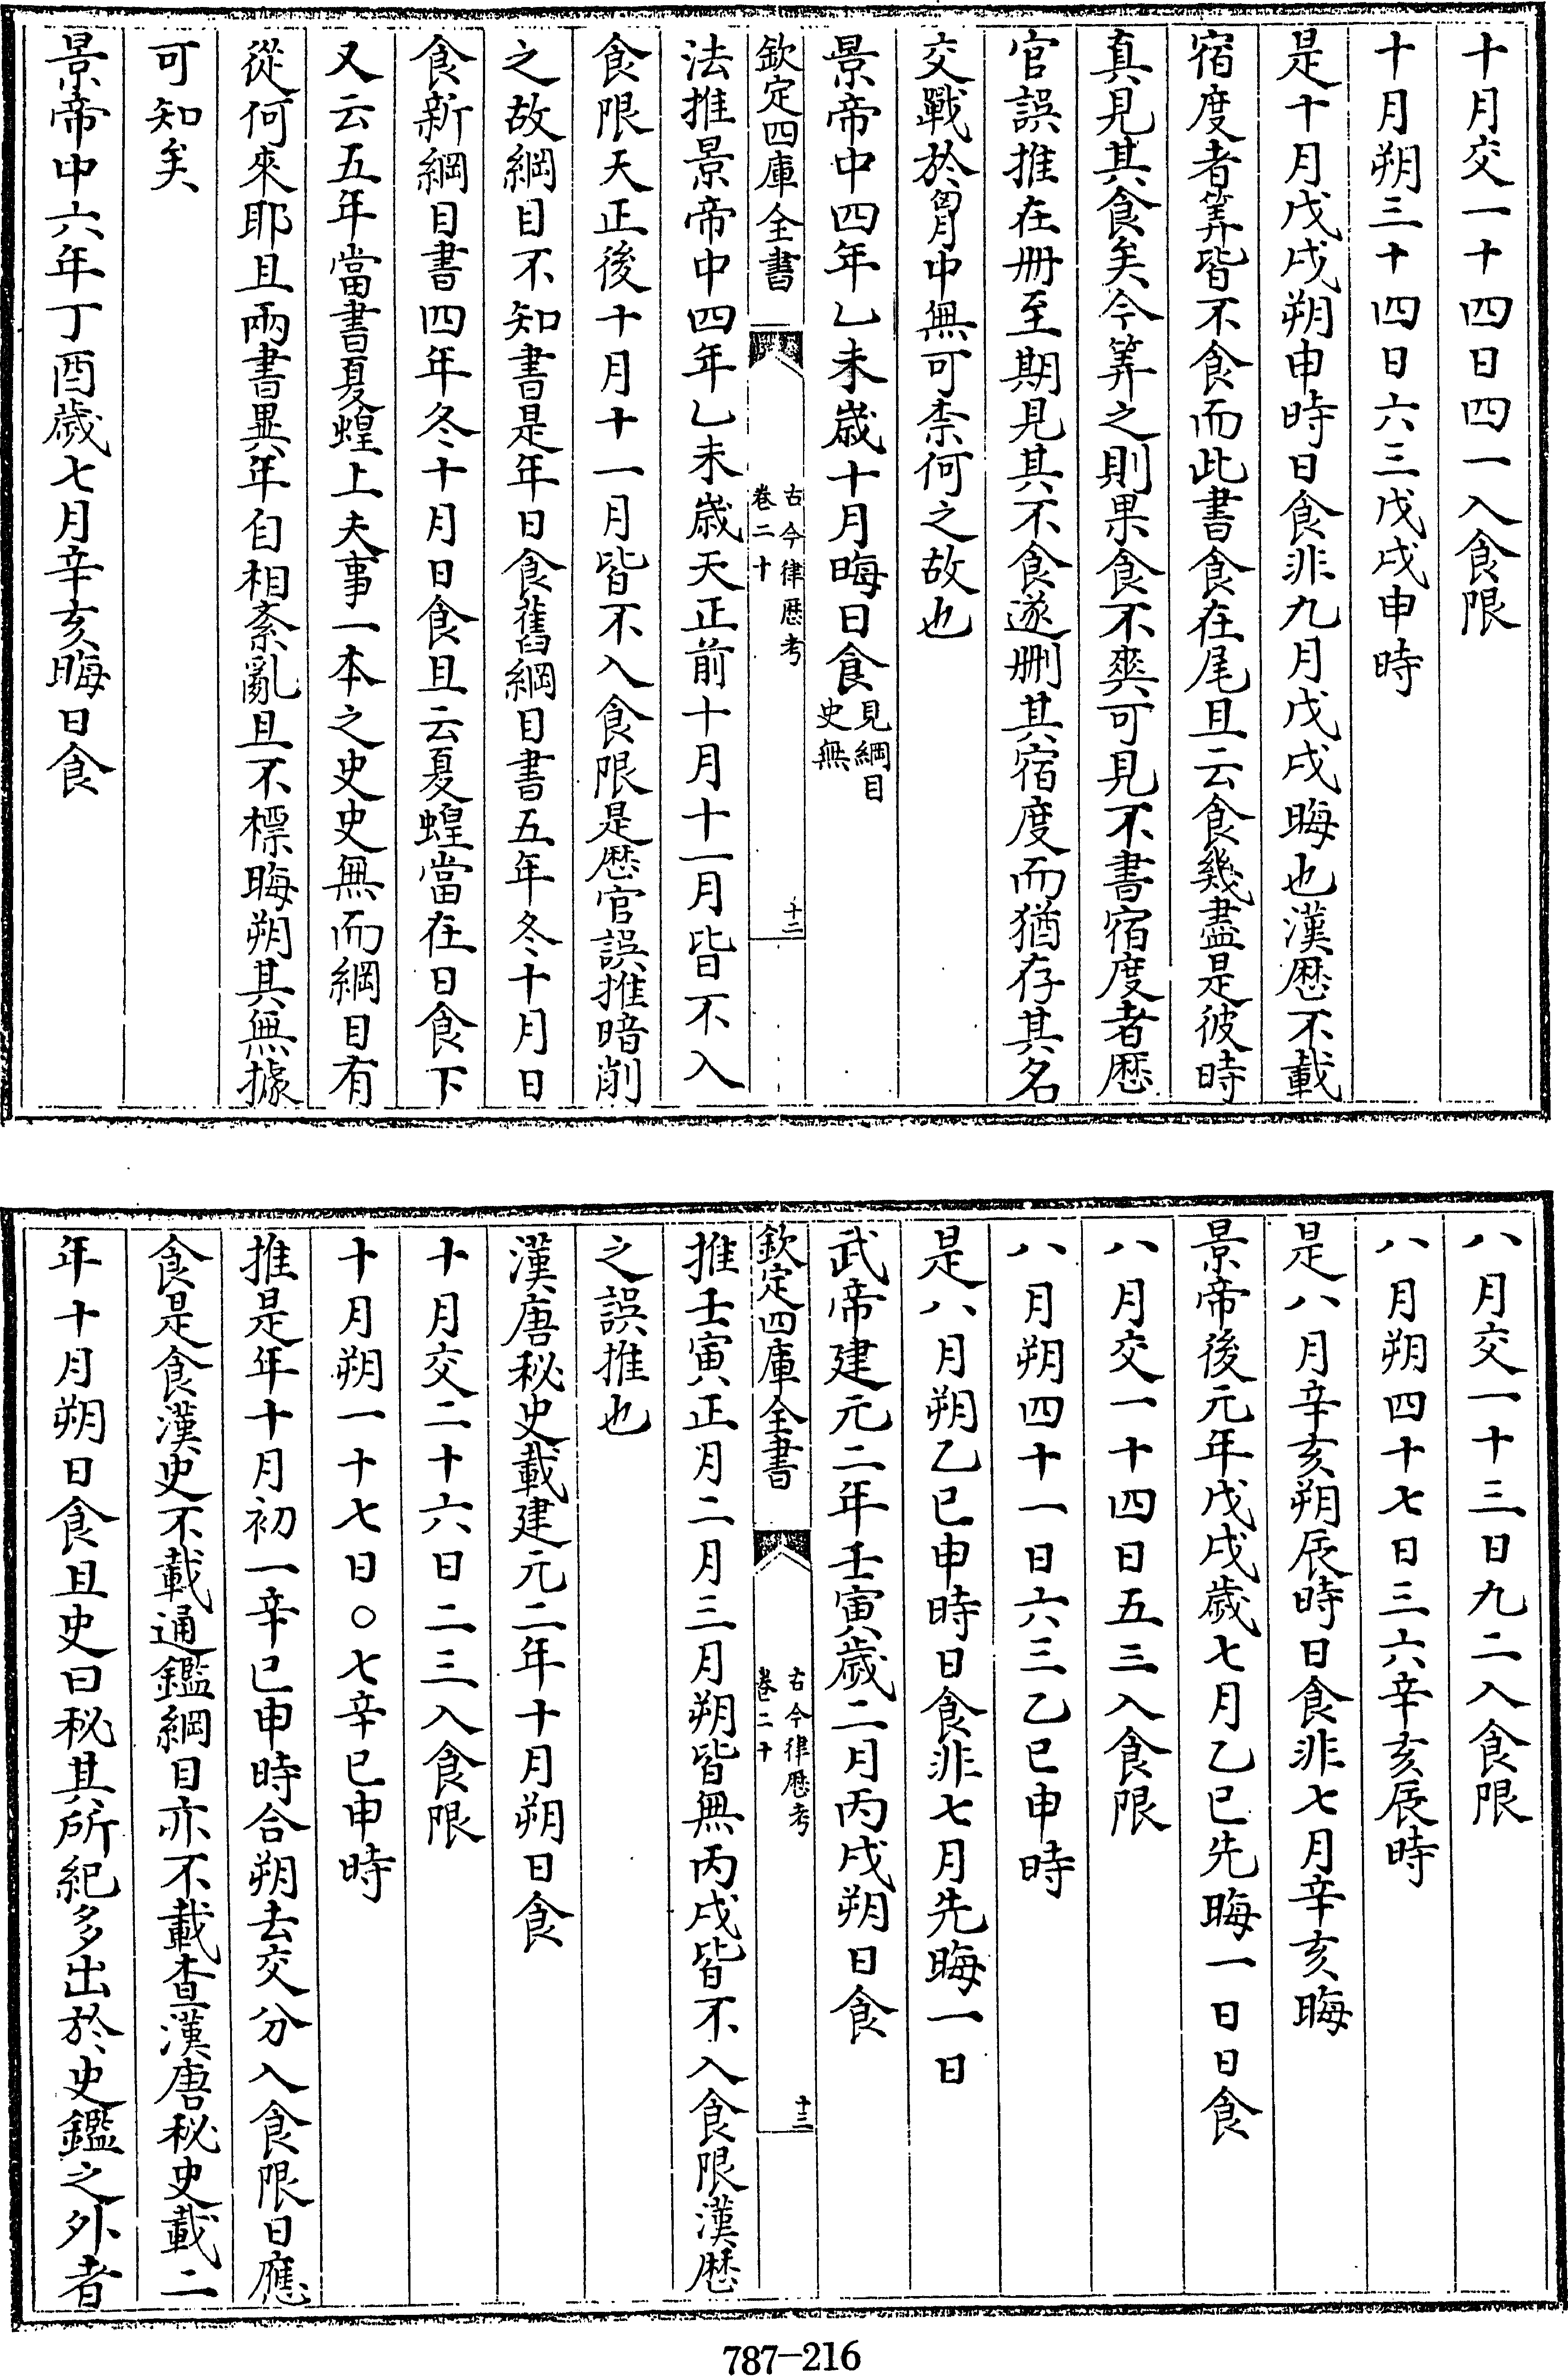 十月交一十四日四一入食限
十月朔三十四日六三戊戌申時
是十月戊戌朔申時日食非九月戊戌晦也漢厯不載
宿度者筭皆不食而此書食在尾且云食幾盡是彼時
真見其食矣今筭之則果食不爽可見不書宿度者厯
官誤推在冊至期見其不食遂刪其宿度而猶存其名
交戰於胷中無可柰何之故也
景帝中四年乙未歲十月晦日食見綱目史無
欽定四庫全書
古今律厯考
卷二十
十二
法推景帝中四年乙未歲天正前十月十一月皆不入
食限天正後十月十一月皆不入食限是厯官誤推暗削
之故綱目不知書是年日食舊綱目書五年冬十月日
食新綱目書四年冬十月日食且云夏蝗當在日食下
又云五年當書夏蝗上夫事一本之史史無而綱目有
從何來耶且兩書異年自相紊亂且不標晦朔其無據
可知矣
景帝中六年丁酉歲七月辛亥晦日食
八月交一十三日九二入食限
八月朔四十七日三六辛亥辰時
是八月辛亥朔辰時日食非七月辛亥晦
景帝後元年戊戌歲七月乙巳先晦一日日食
八月交一十四日五三入食限
八月朔四十一日六三乙巳申時
是八月朔乙巳申時日食非七月先晦一日
武帝建元二年壬寅歲二月丙戌朔日食
欽定四庫全書
古今律厯考
卷二十
十三
推壬寅正月二月三月朔皆無丙戌皆不入食限漢厯
之誤推也
漢唐秘史載建元二年十月朔日食
十月交二十六日二三入食限
十月朔一十七日○七辛巳申時
推是年十月初一辛巳申時合朔去交分入食限日應
食是食漢史不載通鑑綱目亦不載查漢唐秘史載二
年十月朔日食且史曰秘其所紀多出於史鑑之外者
787-216